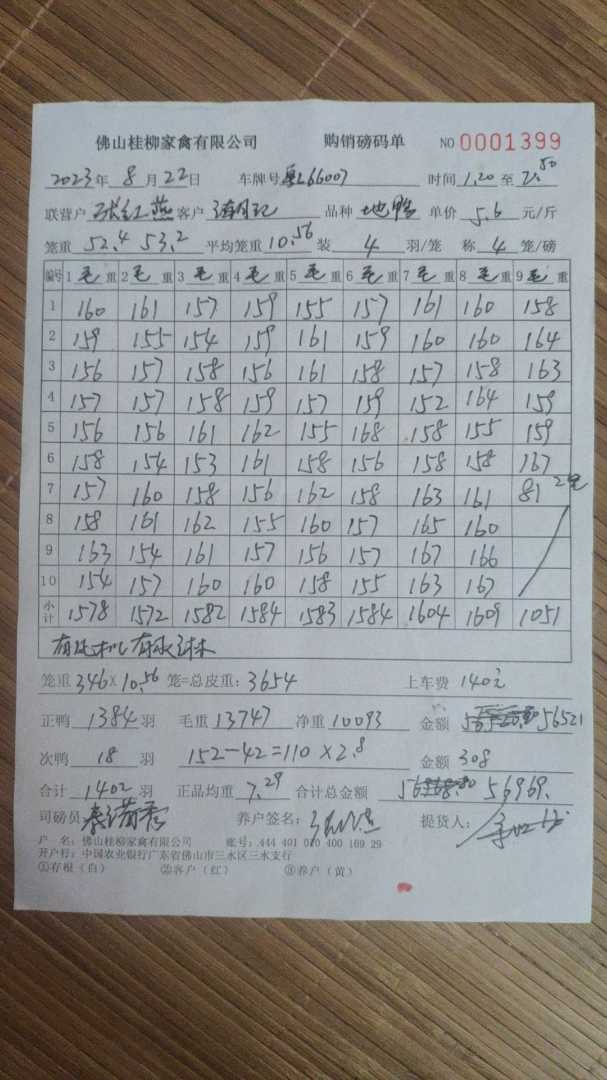 佛山桂柳家禽有限公司 购销磅码单 NO 0001399
2023年 8月 22日 车牌号 粤L66007 时间 1.20 至 2.50
联营户 张红燕 客户 品种 地鸭 单价 5.6 元/斤
笼重 52.4 53.2 平均笼重 10.56 装 4 羽/笼 称 4 笼/磅
编号 1 毛 重 2 毛 重 3 毛 重 4 毛 重 5 毛 重 6 毛 重 7 毛 重 8 毛 重 9 毛 重
1 160 161 157 159 155 157 161 160 158
2 159 155 154 159 161 159 160 160 164
3 156 157 158 156 161 158 157 158 163
4 157 157 158 159 157 159 152 164 159
5 156 156 161 162 155 168 158 155 159
6 158 154 153 161 158 156 158 158 167
7 157 160 158 156 162 158 163 161 81 2笼
8 158 161 162 155 160 157 165 160
9 163 154 161 157 156 157 167 166
10 154 157 160 160 158 155 163 167
小计 1578 1572 1582 1584 1583 1584 1604 1609 1051
笼重 346 × 10.56 笼=总皮重: 3654 上车费 140元
正鸭 1384 羽 毛重 13747 净重 10093 金额 56521
次鸭 18 羽 152-42=110×2.8 金额 308
合计 1402 羽 正品均重 7.29 合计总金额 56969.
司磅员 养户签名: 提货人:
户 名: 佛山桂柳家禽有限公司 账号: 444 401 010 400 169 29
开户行: 中国农业银行广东省佛山市三水区三水支行
①存根(白) ②客户(红) ③养户(黄)